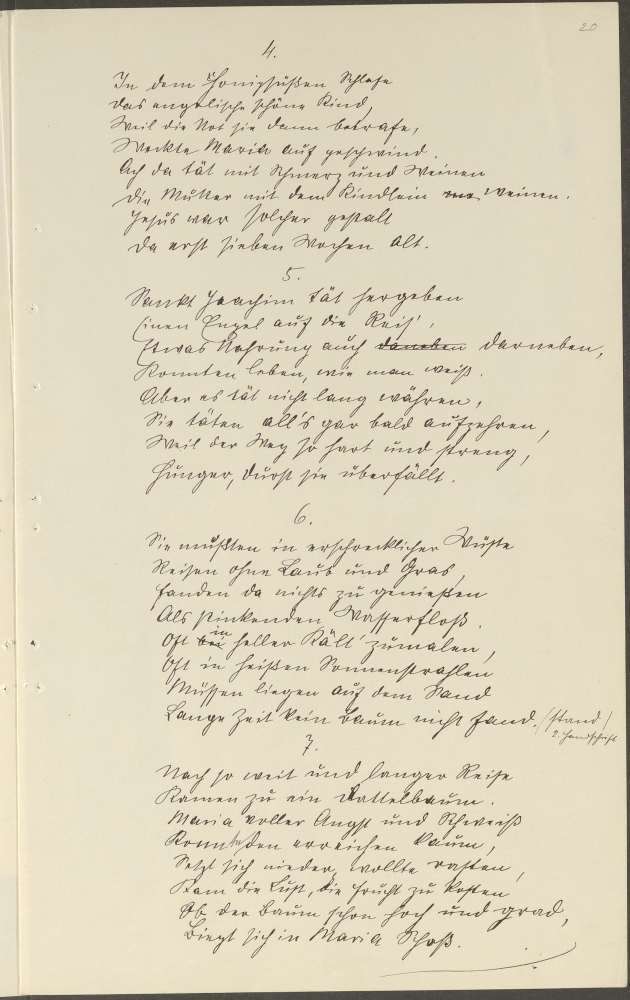 20
4.
In dem Honigsüßen Schlafe
Das englische schöne Kind,
Weil die Not sie dann betrafe,
Weckte Maria auf geschwind.
Ach da tät mit Schmerz und Weinen
Die Mutter mit dem Kindlein weinen.
Jesus war solcher gestalt
Da erst sieben Wochen alt.
5.
Sankt Joachim tät hergeben
Einen Engel auf die Reis',
Etwas Nahrung auch daneben darneben,
Konnten leben, wie man weiß.
Aber es tät nicht lang währen,
Sie täten all's gar bald aufzehren,
Weil der Weg so hart und streng,
Hunger, Durst sie überfällt.
6.
Sie mußten in erschrecklicher Wüste
Reisen ohne Laub und Gras,
Fanden da nichts zu genießen
Als stinkenden Wasserfloß.
Oft bei in heller Kält' zumalen,
Oft in heißen Sonnenstrahlen
Müssen liegen auf dem Sand
Lange Zeit kein Baum nicht fand. (stand)
2. Handschrift
7.
Nach so weit und langer Reise
Kamen zu ein Dattelbaum.
Maria voller Angst und Schweiß
Konnte den erreichen kaum,
Setzt sich nieder, wollte rasten,
Kam die Lust, die Frucht zu kosten
Ob der Baum schon hoch und grad,
Biegt sich in Maria Schoß.